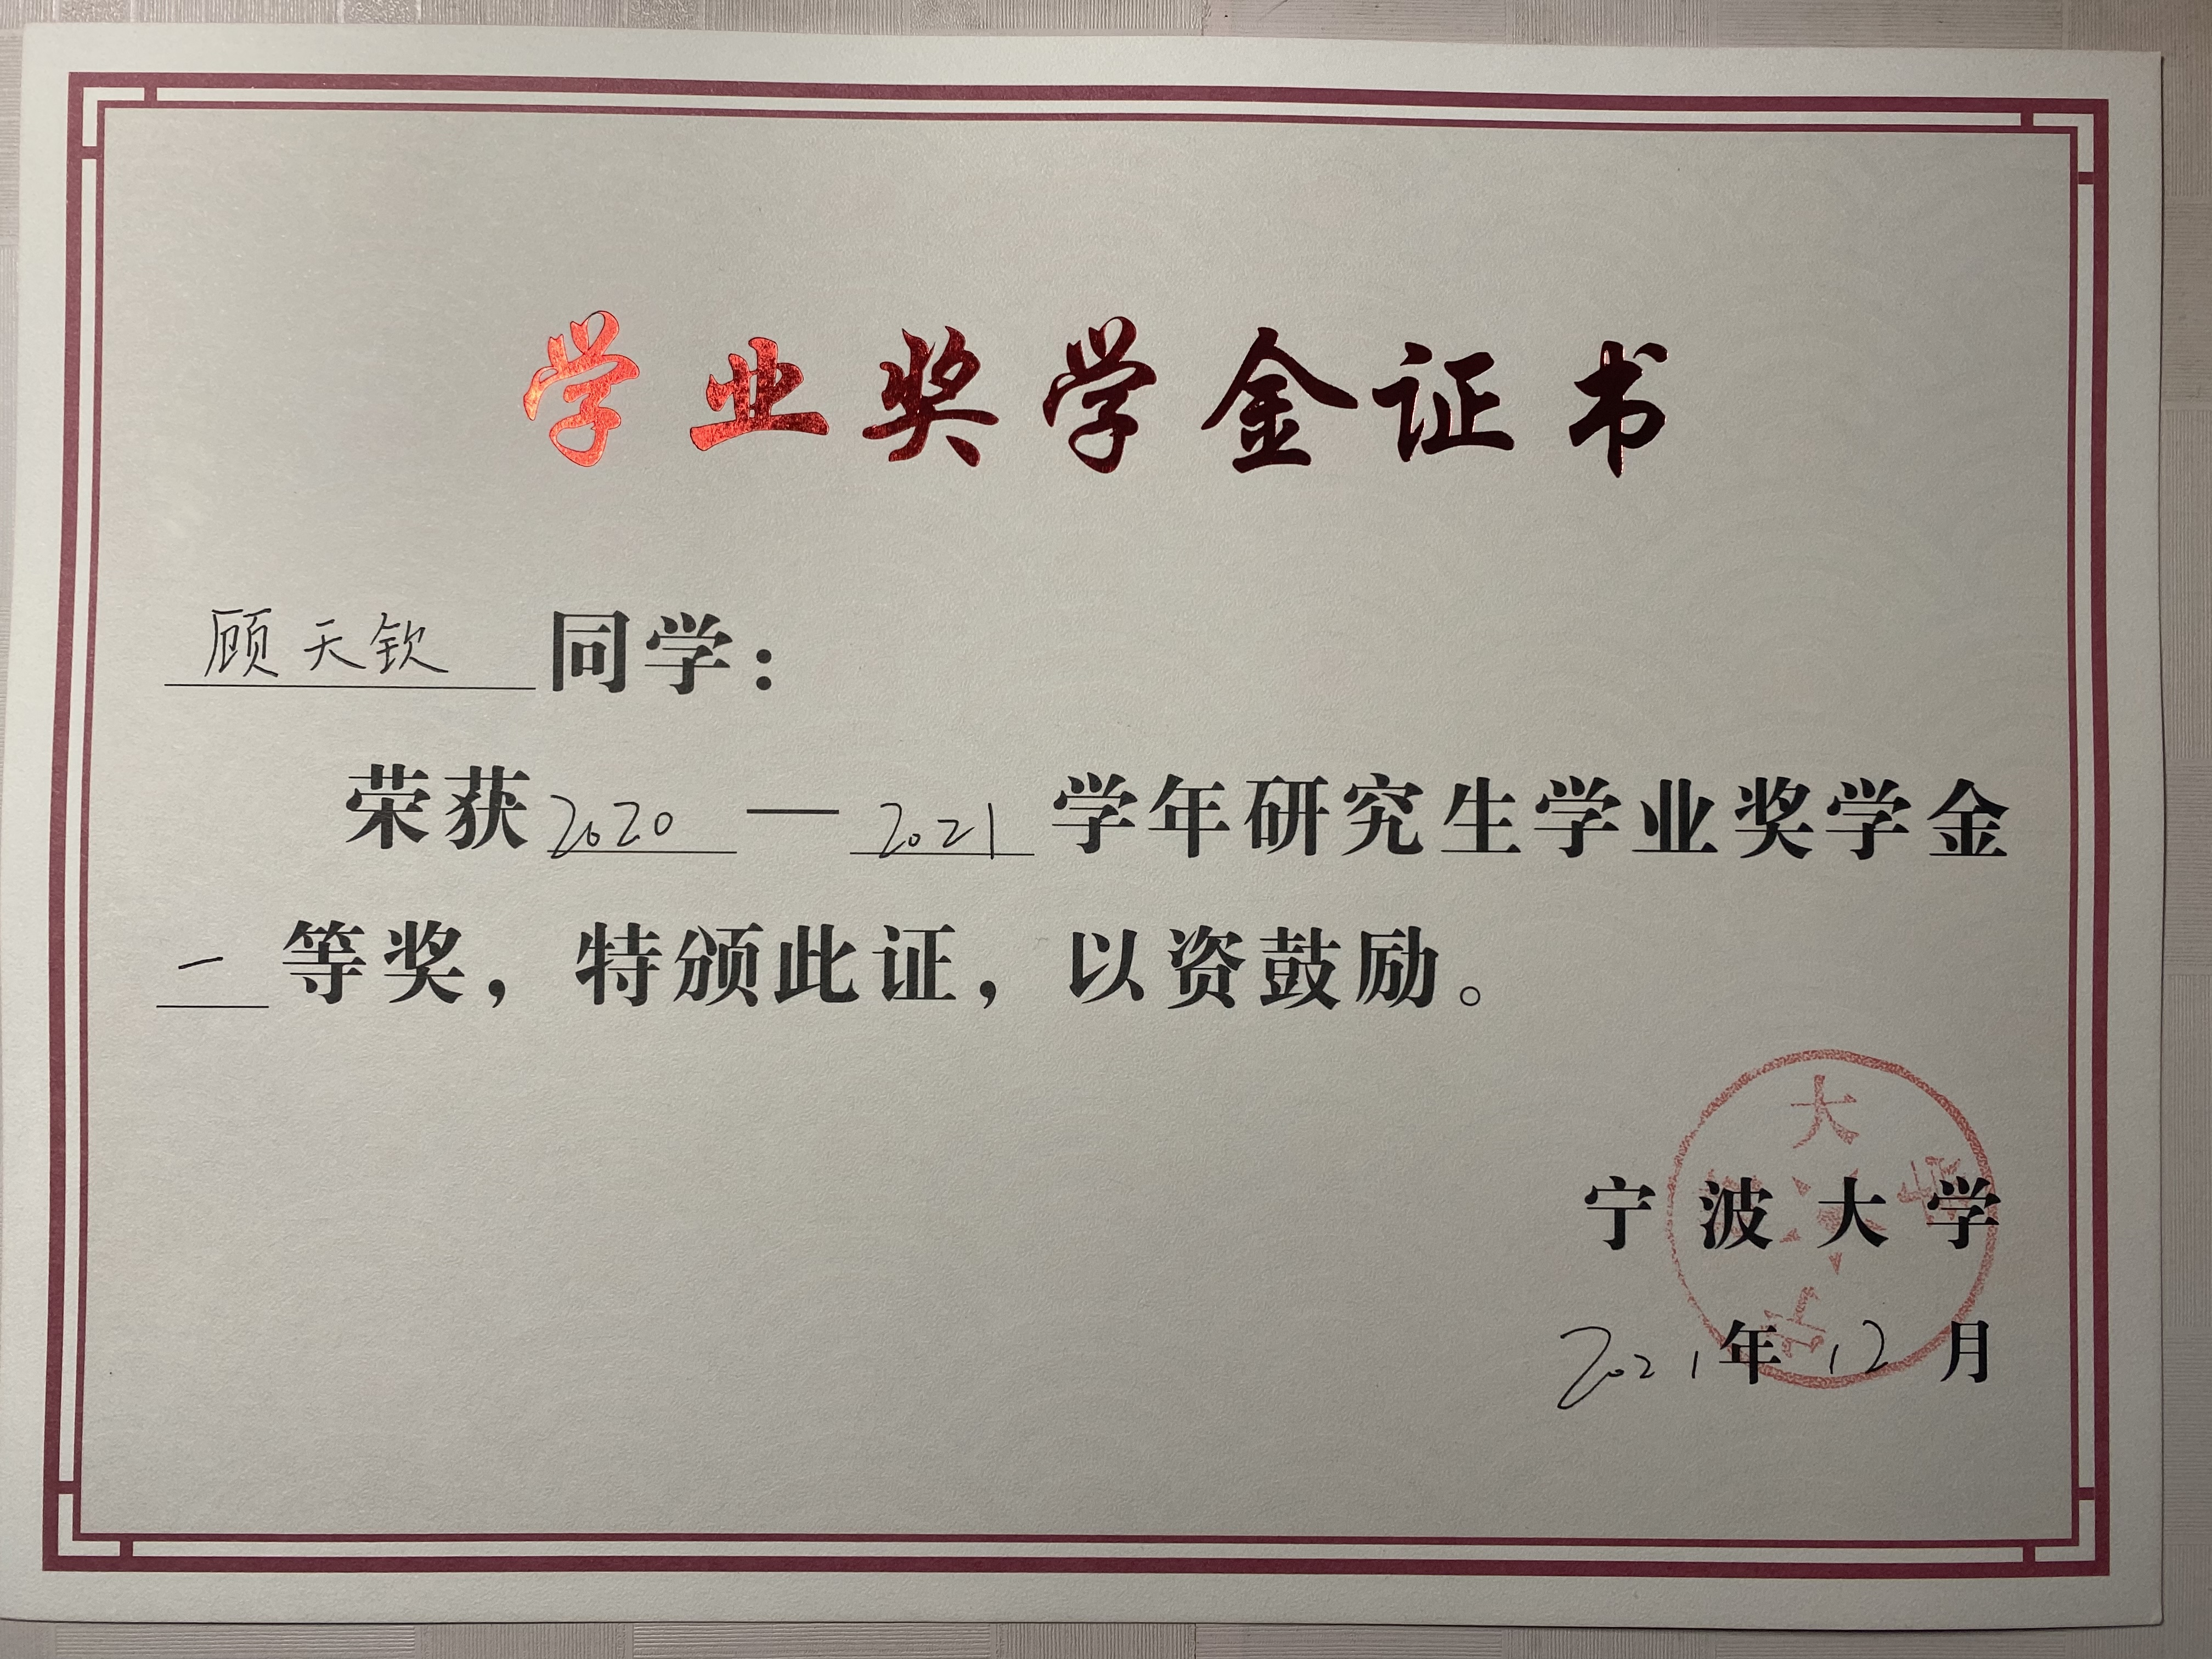 学业奖学金证书
顾天钦同学：
荣获2020—2021学年研究生学业奖学金
一等奖，特颁此证，以资鼓励。
宁波大学
2021年12月
大